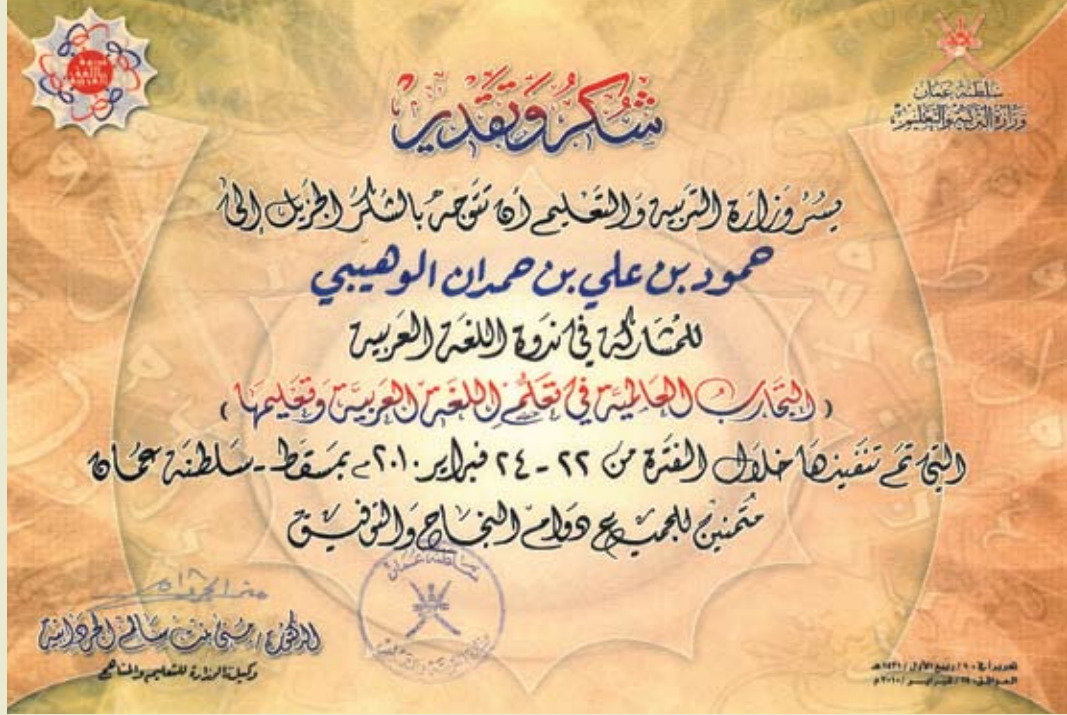 ندوة اللغة العربية
سلطنة عمان
وزارة التربية والتعليم
شكر وتقدير
يسر وزارة التربية والتعليم أن تتوجه بالشكر الجزيل إلى
حمود بن علي بن حمدان الوهيبي
للمشاركة في ندوة اللغة العربية
( التجارب العالمية في تعلم اللغة العربية وتعليمها )
التي تم تنفيذها خلال الفترة من ٢٢ - ٢٤ فبراير ٢٠١٠م بمسقط - سلطنة عمان
متمنين للجميع دوام النجاح والتوفيق
سلطنة عمان
الدكتورة / منى بنت سالم الجردانية
وكيلة الوزارة للتعليم والمناهج
تحريرا في ٠٩ / ربيع الأول / ١٤٣١هـ
الموافق ٢٤ / فبراير / ٢٠١٠م